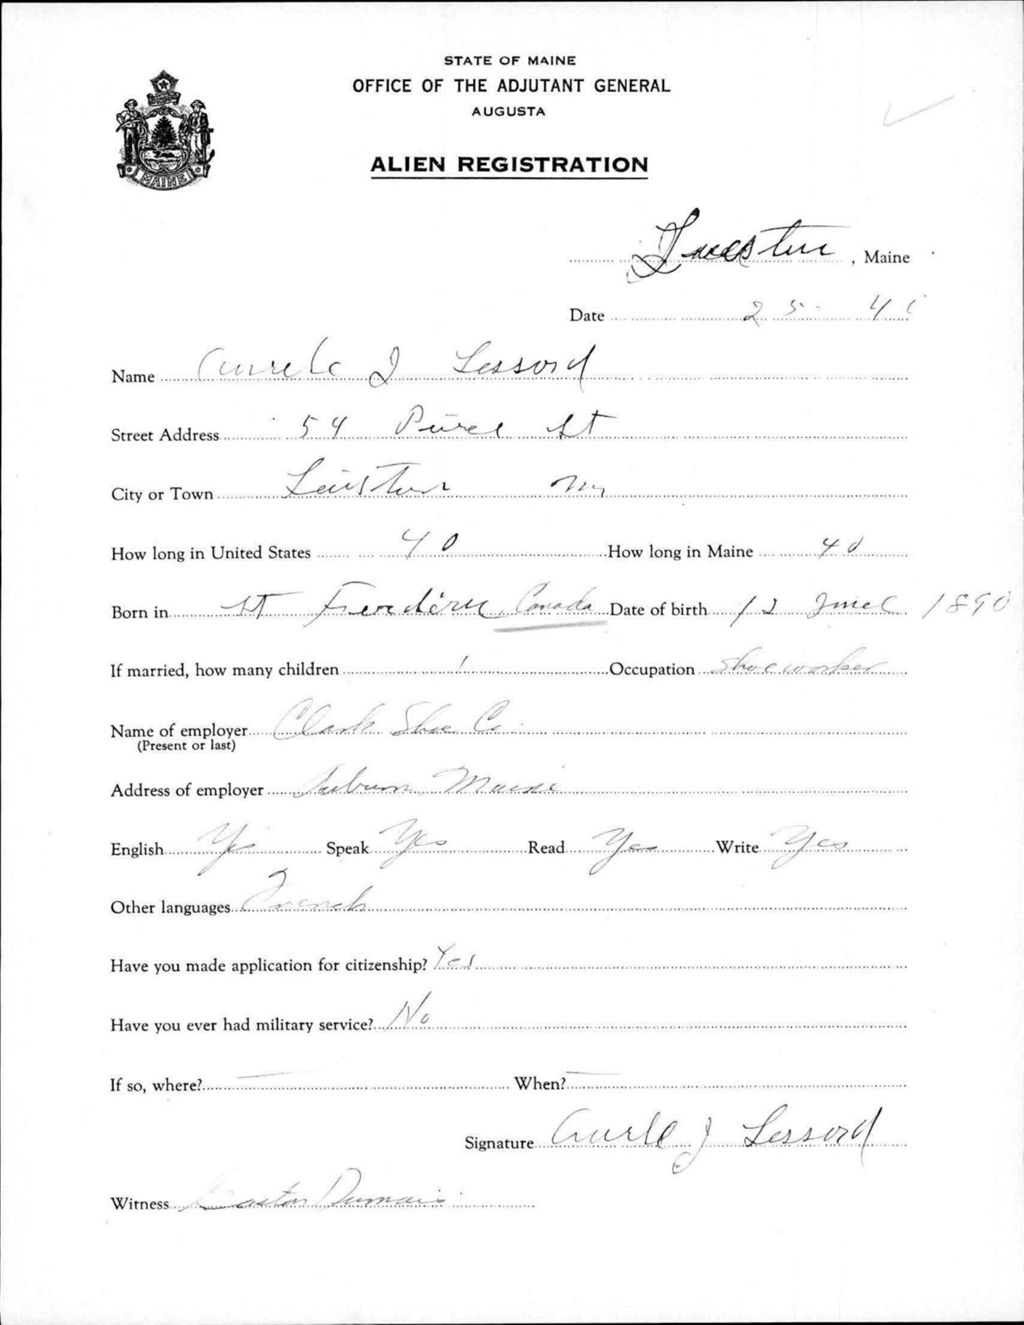 STATE OF MAINE
OFFICE OF THE ADJUTANT GENERAL
AUGUSTA
ALIEN REGISTRATION
MAINE
, Maine
Date 25 - 40
Name Aurele J Lessard
Street Address 54 St
City or Town
How long in United States 40 How long in Maine 40
Born in St Canada Date of birth 12 1890
If married, how many children 1 Occupation Shoe worker
Name of employer Clark Shoe Co
(Present or last)
Address of employer Auburn Maine
English Yes Speak Yes Read Yes Write Yes
Other languages French
Have you made application for citizenship? Yes
Have you ever had military service? No
If so, where? When?
Signature J Lessard
Witness Dumais